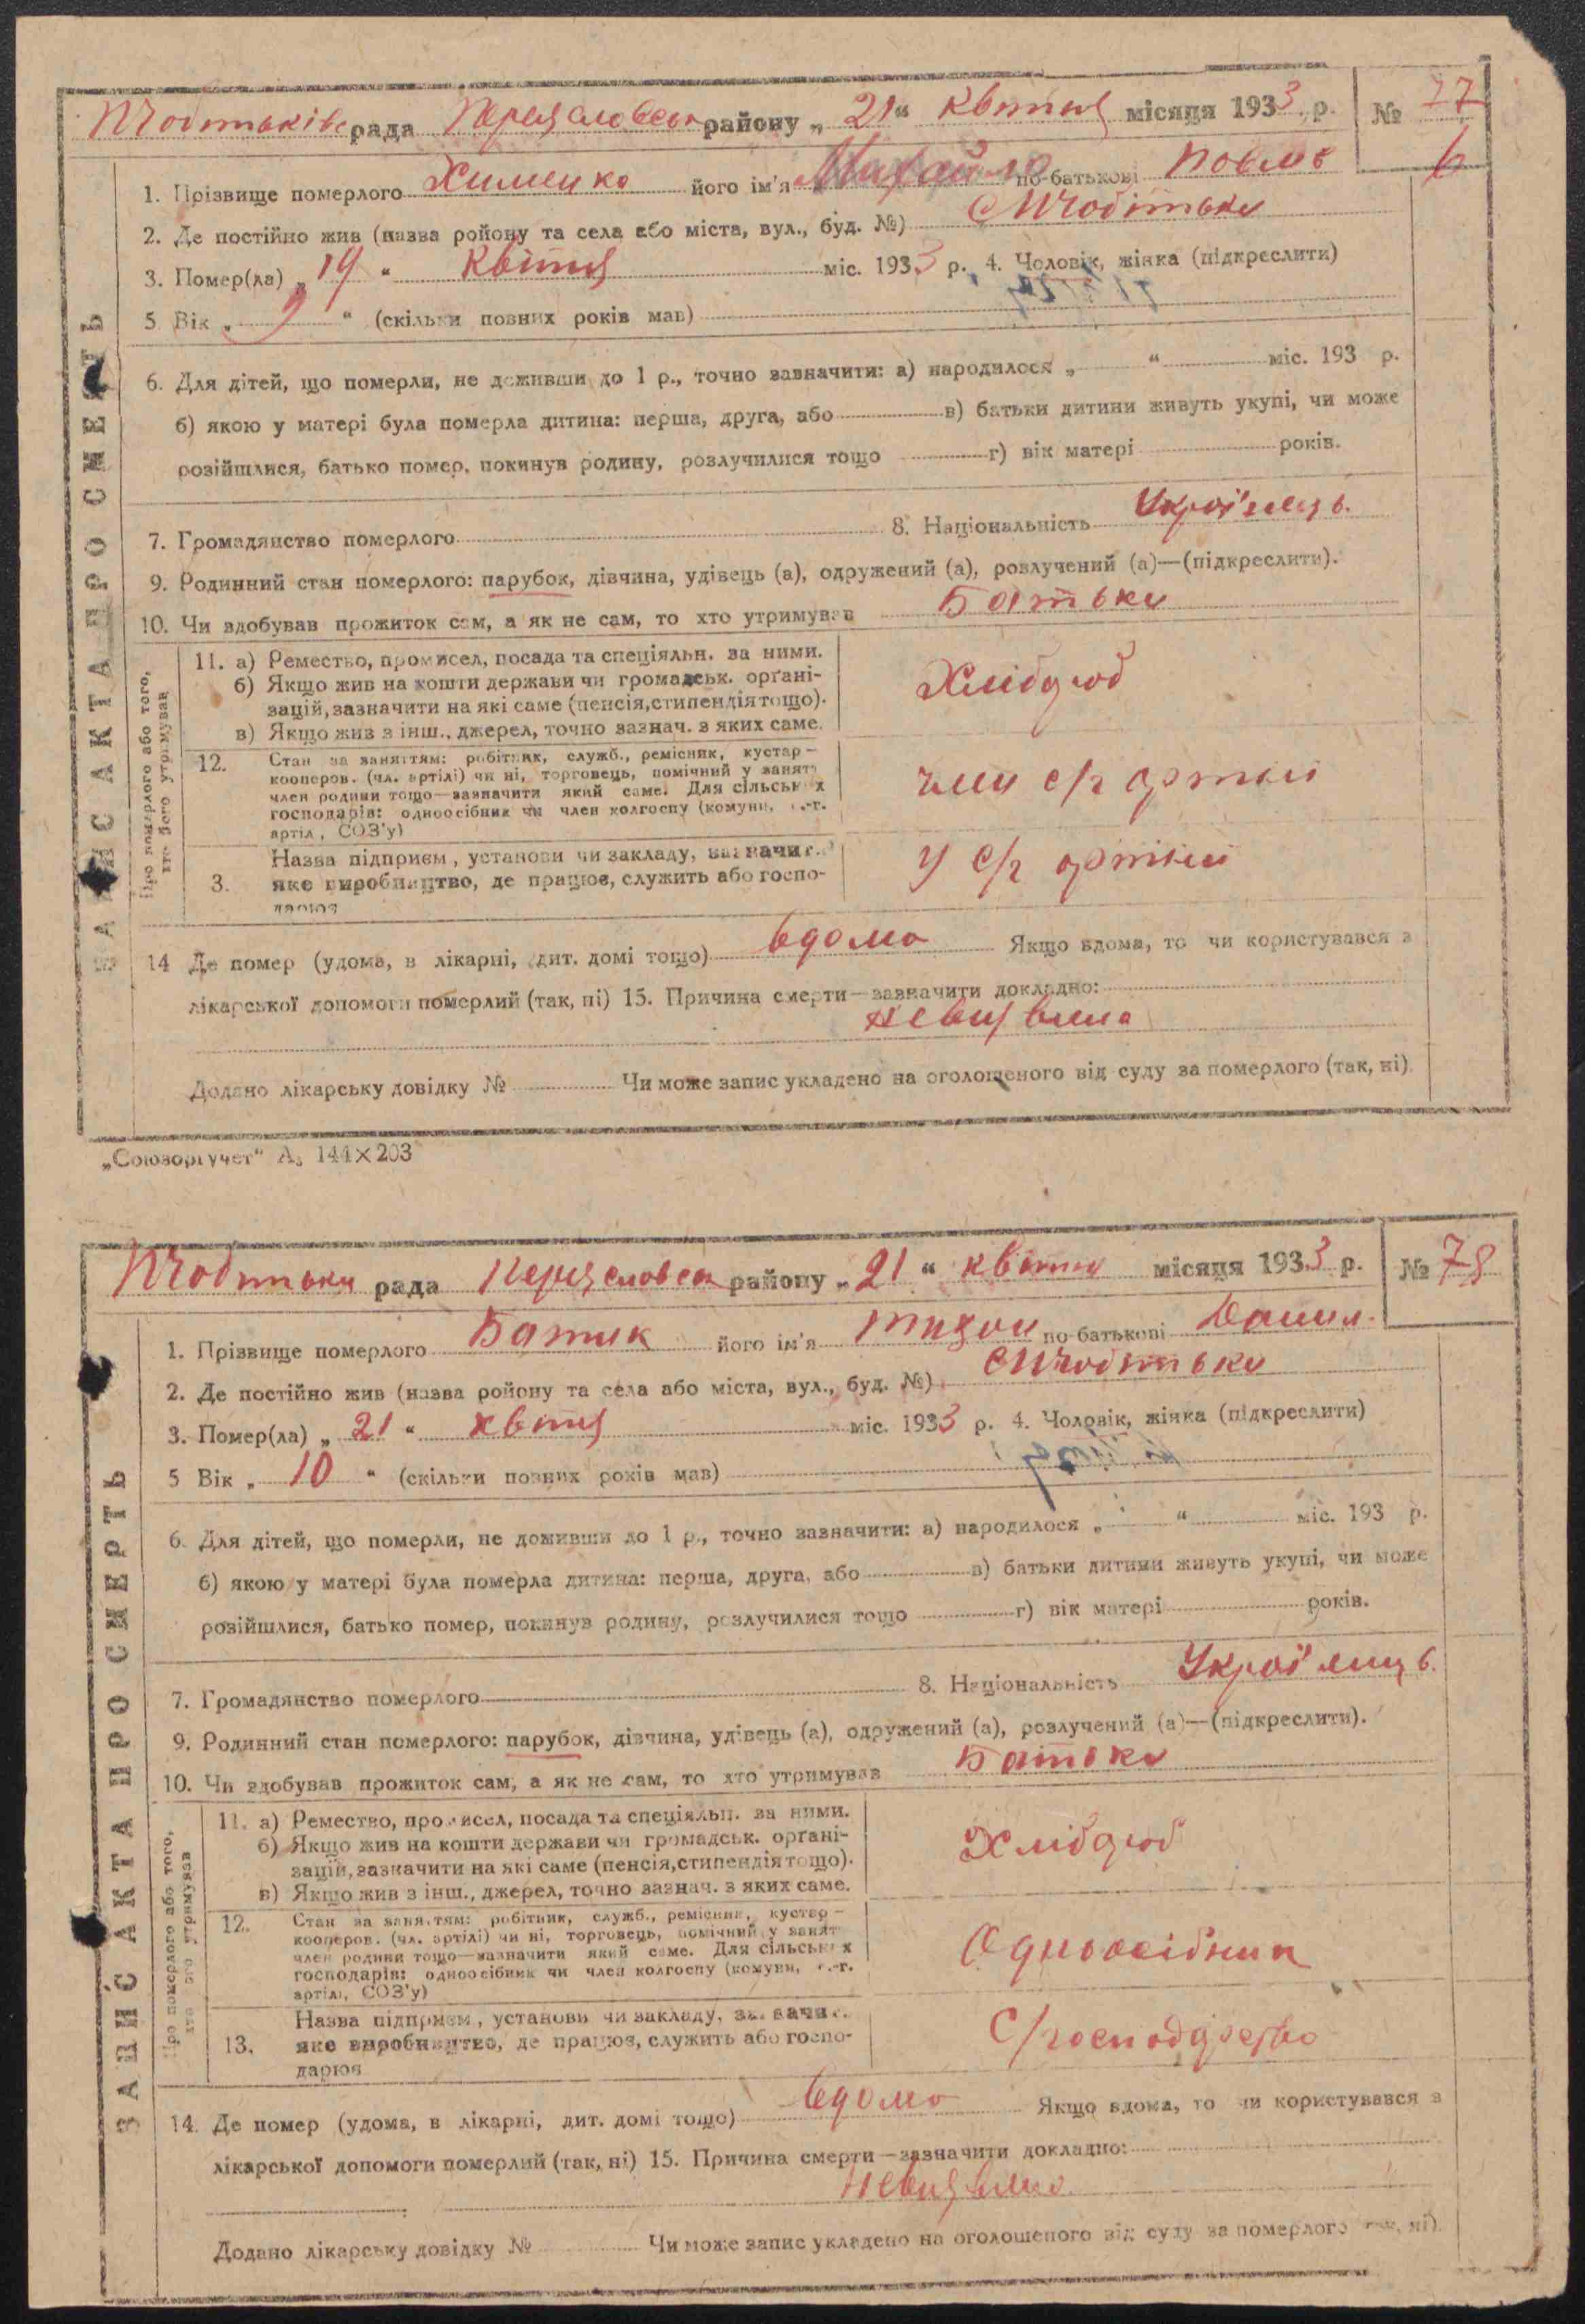 рада Переяславськ району „ 21 “ Квітня місяця 1933 р. № 77
1. Прізвище померлого Хименко його ім'я Михайло по-батькові Павло
2. Де постійно жив (назва ройону та села або міста, вул., буд. №)
3. Помер(ла) „ 19 “ Квітня міс. 1933 р. 4. Чоловік, жінка (підкреслити)
5 Вік „ 9 “ (скільки повних років мав)
6. Для дітей, що померли, не доживши до 1 р., точно зазначити: а) народилося „ “ міс. 193 р.
б) якою у матері була померла дитина: перша, друга, або в) батьки дитини живуть укупі, чи може
розійшлися, батько помер, покинув родину, розлучилися тощо г) вік матері років.
7. Громадянство померлого 8. Національність Українець.
9. Родинний стан померлого: парубок, дівчина, удівець (а), одружений (а), розлучений (а)—(підкреслити).
10. Чи здобував прожиток сам, а як не сам, то хто утримував Батьки
ЗАПИС АКТА ПРО СМЕРТЬ
Про померлого або того,
хто його утримував
11. а) Ремество, промисел, посада та спеціяльн. за ними.
б) Якщо жив на кошти держави чи громадськ. орґані-
зацій, зазначити на які саме (пенсія, стипендія тощо).
в) Якщо жив з інш., джерел, точно зазнач. з яких саме.
Хлібороб
12. Стан за заняттям: робітник, служб., ремісник, кустар —
кооперов. (чл. артілі) чи ні, торговець, помічний у занят
член родини тощо—зазначити який саме. Для сільських
господарів: одноосібник чи член колгоспу (комуни, с.-г.
артіл, СОЗ'у)
член с/г артілі
3. Назва підприєм, установи чи закладу, зазначит.
яке виробництво, де працює, служить або госпо-
дарює
У с/г артілі
14 Де помер (удома, в лікарні, дит. домі тощо) вдома Якщо вдома, то чи користувався з
лікарської допомоги померлий (так, ні) 15. Причина смерти—зазначити докладно:
Невиявлена
Додано лікарську довідку № Чи може запис укладено на оголошеного від суду за померлого (так, ні).
„Союзоргучет“ А₅ 144×203
рада Переяславськ району „ 21 “ квітня місяця 1933 р. № 78
1. Прізвище померлого Батик його ім'я по-батькові Данил.
2. Де постійно жив (назва ройону та села або міста, вул., буд. №)
3. Помер(ла) „ 21 “ квітня міс. 1933 р. 4. Чоловік, жінка (підкреслити)
5 Вік „ 10 “ (скільки повних років мав)
6. Для дітей, що померли, не доживши до 1 р., точно зазначити: а) народилося „ “ міс. 193 р.
б) якою у матері була померла дитина: перша, друга, або в) батьки дитини живуть укупі, чи може
розійшлися, батько помер, покинув родину, розлучилися тощо г) вік матері років.
7. Громадянство померлого 8. Національність Українець.
9. Родинний стан померлого: парубок, дівчина, удівець (а), одружений (а), розлучений (а)—(підкреслити).
10. Чи здобував прожиток сам, а як не сам, то хто утримував Батьки
ЗАПИС АКТА ПРО СМЕРТЬ
Про померлого або того,
хто його утримував
11. а) Ремество, промисел, посада та спеціяльн. за ними.
б) Якщо жив на кошти держави чи громадськ. орґані-
зацій, зазначити на які саме (пенсія, стипендія тощо).
в) Якщо жив з інш., джерел, точно зазнач. з яких саме.
Хлібороб
12. Стан за заняттям: робітник, служб., ремісник, кустар —
кооперов. (чл. артілі) чи ні, торговець, помічний у занят
член родини тощо—зазначити який саме. Для сільських
господарів: одноосібник чи член колгоспу (комуни, с.-г.
артілі, СОЗ'у)
Одноосібник
13. Назва підприєм, установи чи закладу, зазначит.
яке виробництво, де працює, служить або госпо-
дарює
С/господарство
14. Де помер (удома, в лікарні, дит. домі тощо) вдома Якщо вдома, то чи користувався з
лікарської допомоги померлий (так, ні) 15. Причина смерти—зазначити докладно:
Невиявлено
Додано лікарську довідку № Чи може запис укладено на оголошеного від суду за померлого (так, ні).